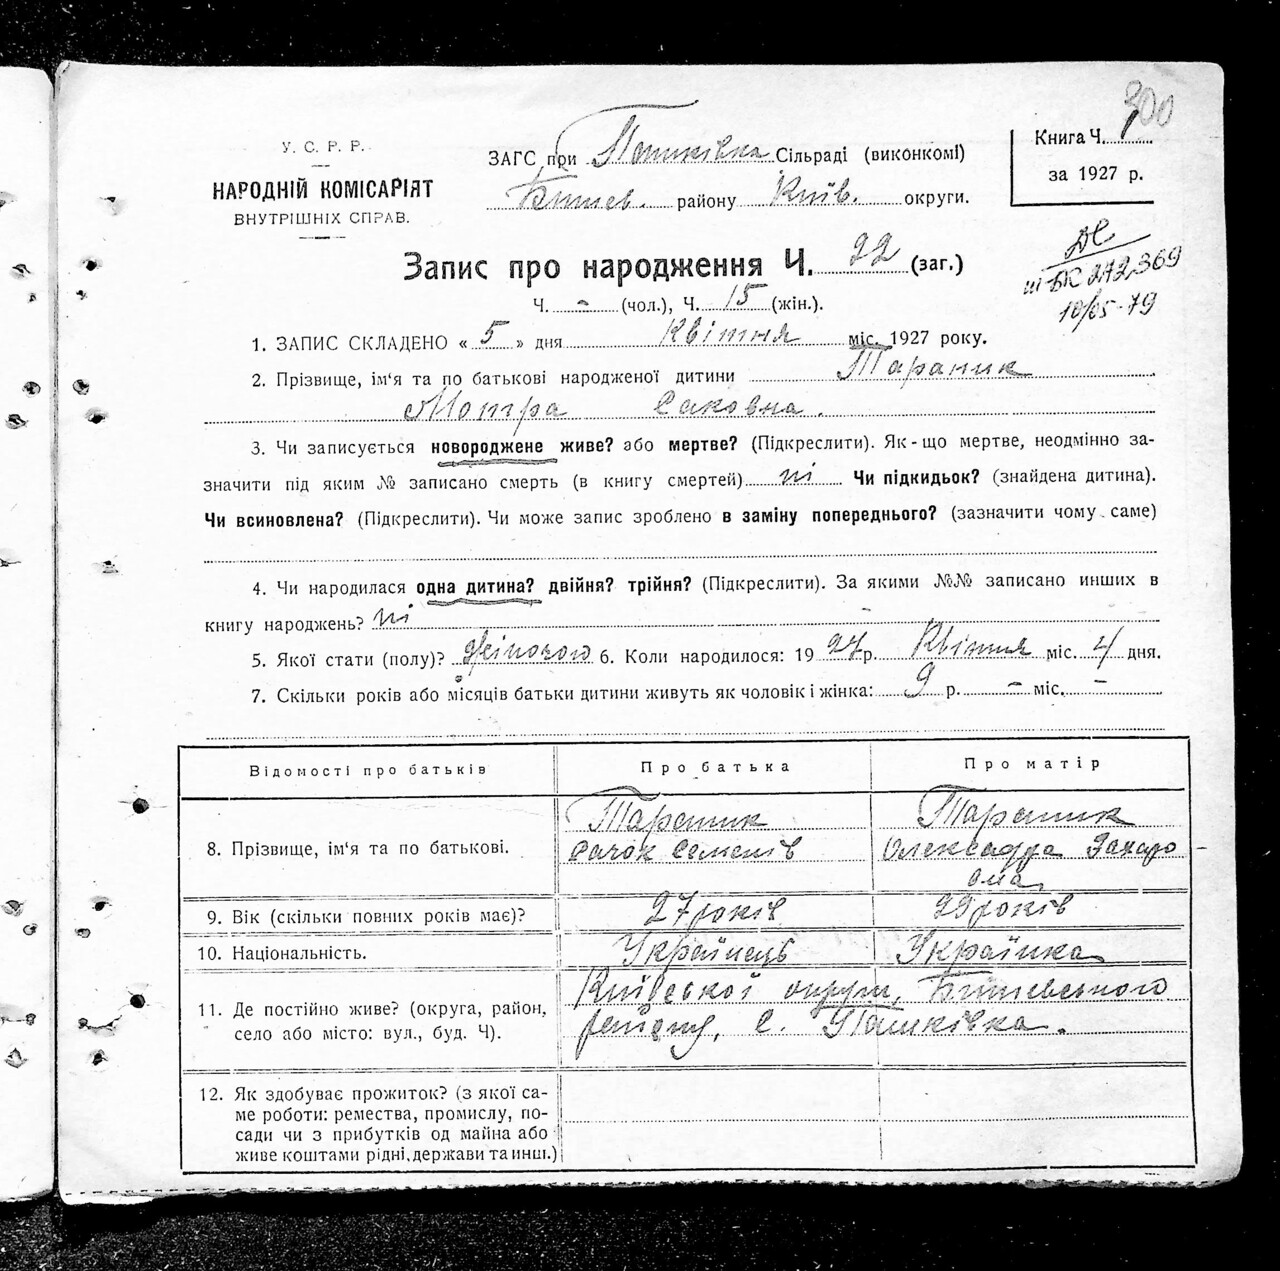 300
У. С. Р. Р.
НАРОДНІЙ КОМІСАРІЯТ
ВНУТРІШНІХ СПРАВ.
ЗАГС при Пашківка Сільраді (виконкомі)
Бишев. району Київ. округи.
Книга Ч.
за 1927 р.
Запис про народження Ч. 22 (заг.)
Ч. – (чол.), Ч. 15 (жін.).
272369
10/05-79
1. ЗАПИС СКЛАДЕНО « 5 » дня Квітня міс. 1927 року.
2. Прізвище, ім'я та по батькові народженої дитини Тараник
Мотра Саковна.
3. Чи записується новороджене живе? або мертве? (Підкреслити). Як-що мертве, неодмінно за-
значити під яким № записано смерть (в книгу смертей) ні Чи підкидьок? (знайдена дитина).
Чи всиновлена? (Підкреслити). Чи може запис зроблено в заміну попереднього? (зазначити чому саме)
4. Чи народилася одна дитина? двійня? трійня? (Підкреслити). За якими №№ записано инших в
книгу народжень? ні
5. Якої стати (полу)? Жіночого 6. Коли народилося: 1927 р. Квітня міс. 4 дня.
7. Скільки років або місяців батьки дитини живуть як чоловік і жінка: 9 р. – міс. –
Відомості про батьків
Про батька
Про матір
8. Прізвище, ім'я та по батькові.
Тараник
Сачок Семенів
Тараник
Олександра Захаро
вна
9. Вік (скільки повних років має)?
27 років
29 років
10. Національність.
Українець
Українка
11. Де постійно живе? (округа, район,
село або місто: вул., буд. Ч).
Київської округи, Бишевського
району, с. Пашківка.
12. Як здобуває прожиток? (з якої са-
ме роботи: ремества, промислу, по-
сади чи з прибутків од майна або
живе коштами рідні, держави та инш.)